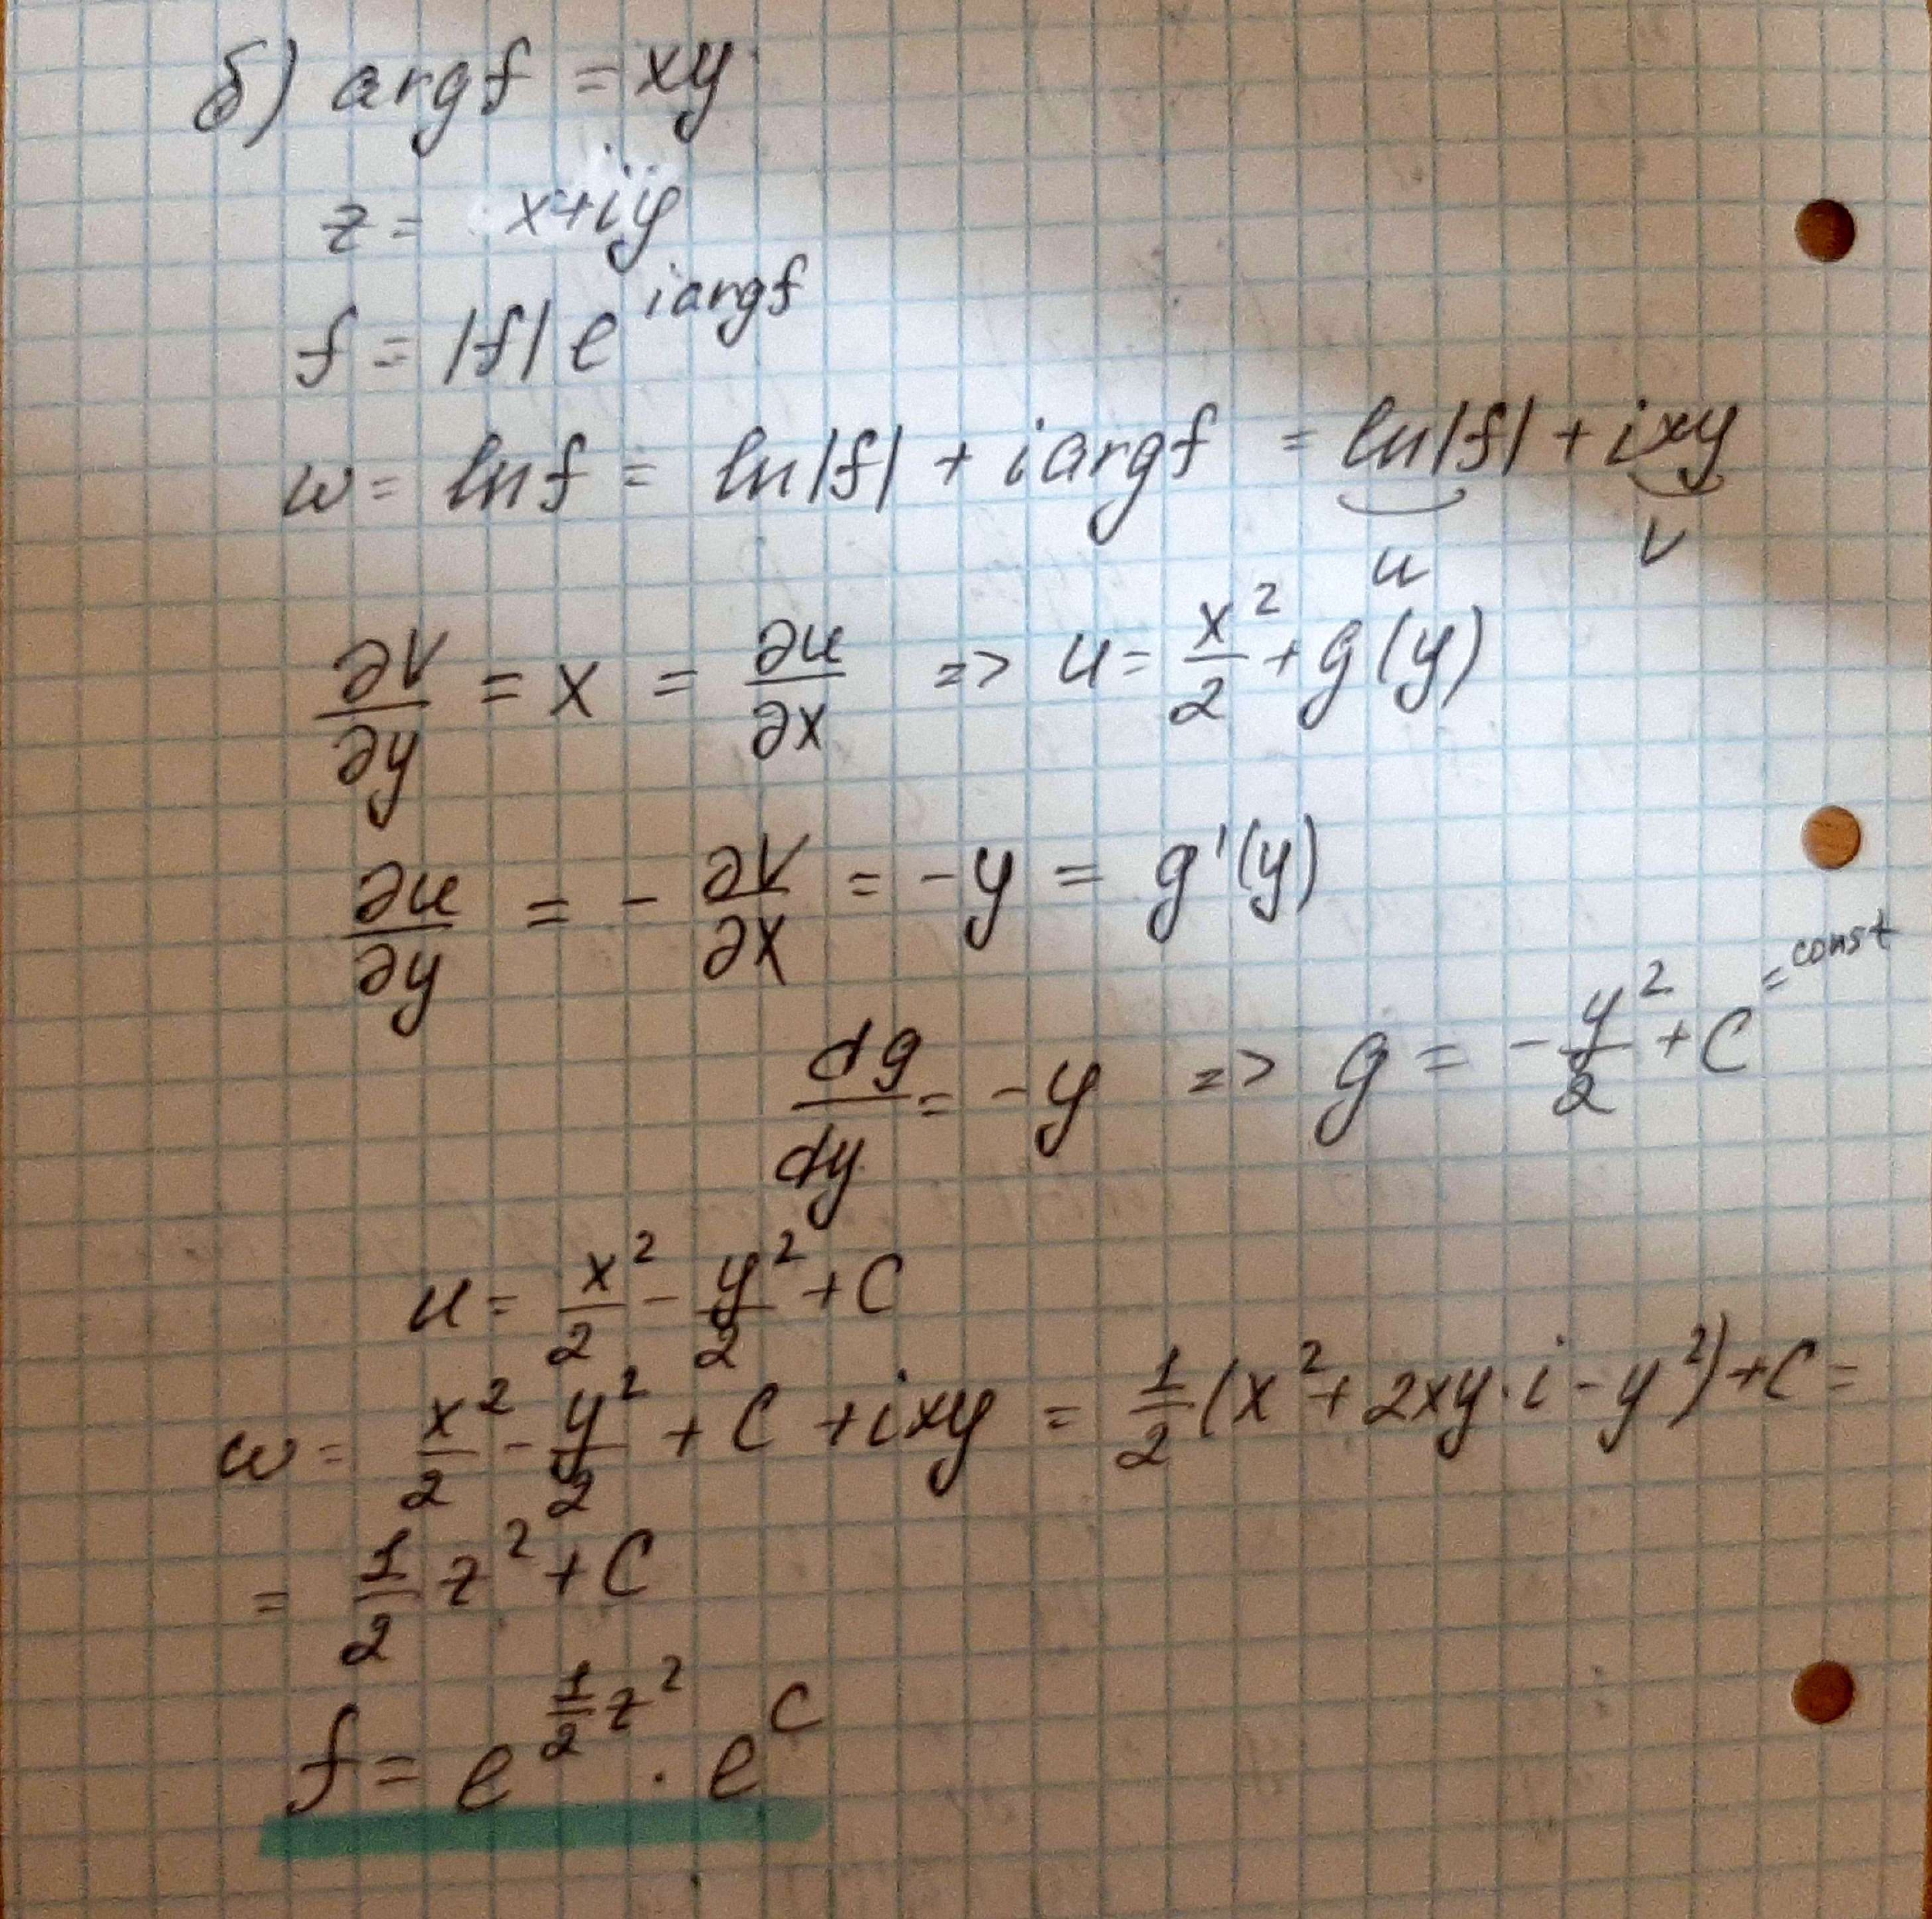 б) argf = xy
z = x+iy
f = |f| e^{i argf}
w = ln f = ln|f| + i argf = ln|f| + ixy
u v
∂v/∂y = x = ∂u/∂x => u = x²/2 + g(y)
∂u/∂y = - ∂v/∂x = -y = g'(y)
dg/dy = -y => g = - y²/2 + C = const
u = x²/2 - y²/2 + C
w = x²/2 - y²/2 + C + ixy = 1/2 (x² + 2xy·i - y²) + C =
= 1/2 z² + C
f = e^{1/2 z²} · e^C